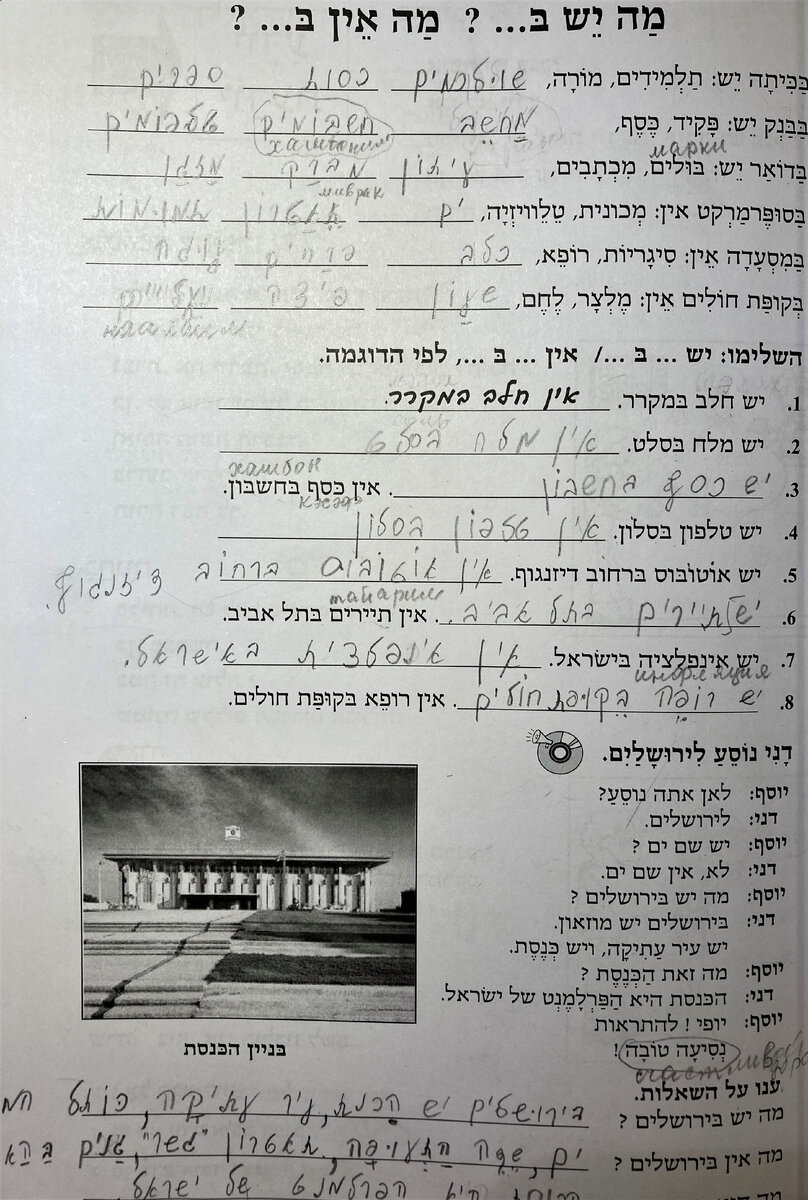 מַה יֵשׁ בּ... ? מַה אֵין בּ... ?
בַּכִּיתָה יֵשׁ: תַּלְמִידִים, מוֹרָה, כסות ספרים
בַּבַּנְק יֵשׁ: פָּקִיד, כֶּסֶף, מַחְשֵׁב חשבומים
марки
בַּדוֹאַר יֵשׁ: בּוּלִים, מִכְתָּבִים, עיתון מברק מַזגָן
миврак
בַּסוּפֶּרמַרקֶט אין: מְכונית, טֵלֵוויזְיָה, ים תֵאַטרוֹן
בַּמִסְעָדָה אֵין: סִיגָרִיוֹת, רוֹפֵא, כלב פרחים עוגה
בְּקוּפַּת חוֹלִים אֵין: מֶלְצָר, לֶחֶם, שעון פיצה
השלימו: יש ... בּ .../ אין ... בּ ..., לפי הדוגמה.
1. יש חלב במקרר. אין חלב במקרר.
2. יש מלח בסלט. אין מלח בסלט
хашбон
3. יש כסף בחשבון. אין כֶּסֶף בחשבּוֹן.
кэсэф
4. יש טלפון בסלון. אין טלפון בסלון
5. יש אוטובוס ברחוב דיזנגוף. אין אוטובוס ברחוב דיזנגוף.
6. יש תיירים בתל אביב. אין תיירים בתל אביב.
7. יש אינפלציה בישראל. אין אינפלציה באישראל.
инфляция
8. יש רופה בקופת חולים. אין רופא בקופת חולים.
דָנִי נוֹסֵעַ לִירוּשָׁלַיִם.
יוסף: לאן אתה נוֹסֵעַ?
דני: לירושלים.
יוסף: יש שם ים ?
דני: לא, אין שם ים.
יוסף: מה יש בירושלים ?
דני: בירושלים יש מוזאון.
יש עיר עַתִיקָה, ויש כְּנֶסֶת.
יוסף: מה זאת הַכְּנֶסֶת ?
דני: הכנסת היא הַפַּרְלָמֶנְט של ישראל.
יוסף: יופי ! להתראות
נְסִיעָה טוֹבָה !
בניין הכנסת
ענו על השאלות.
מה יש בירושלים ? בירושלים יש הכנסת, עיר עתיקה, כותל
מה אין בירושלים ? ים, שְׂדֵה הַתְעוּפָה, תאטרון "גשר", גַנים
היא הפרלמנט של ישראל.